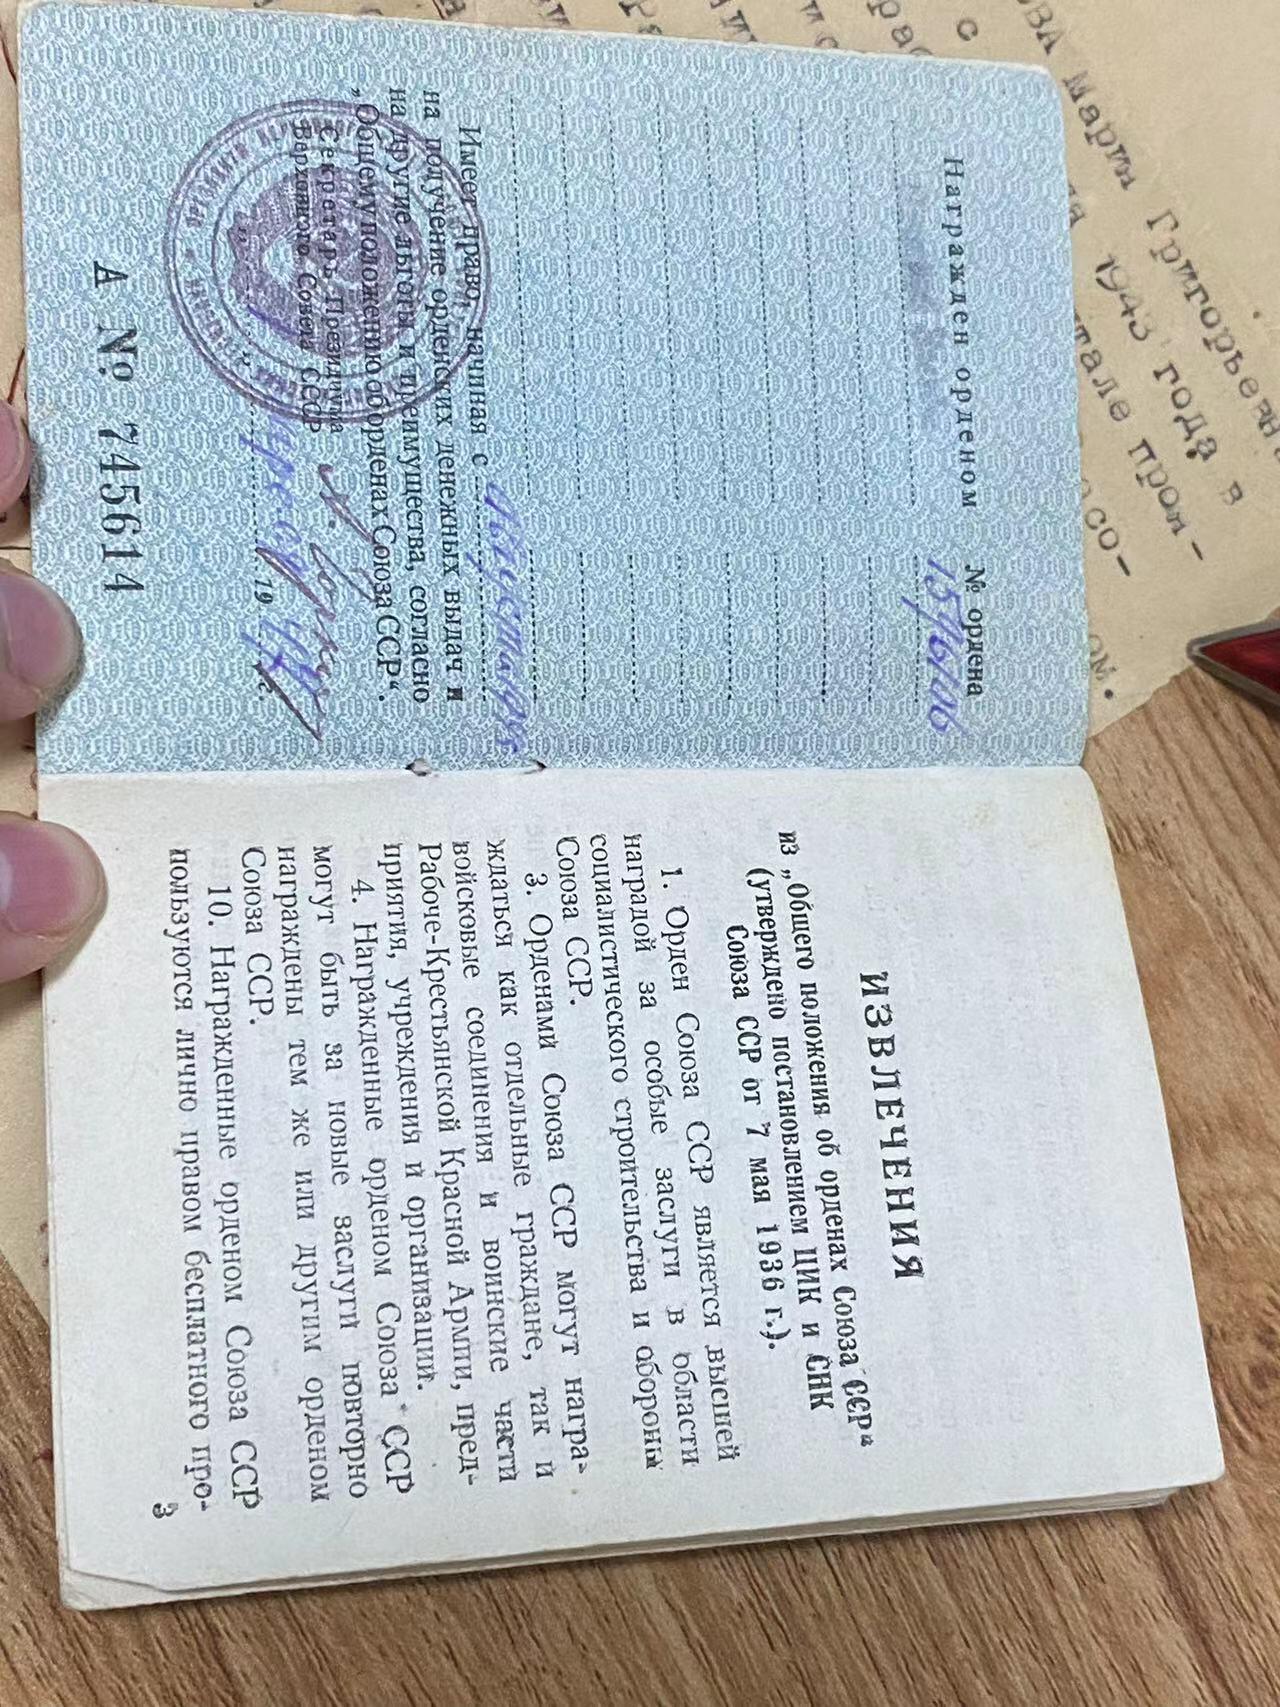 Награжден орденом № ордена
Имеет право, начиная с
на получение орденских денежных выдач и
на другие льготы и преимущества, согласно
„Общему положению об орденах Союза ССР“.
Секретарь Президиума
Верховного Совета СССР
19
г.
А № 745614
ИЗВЛЕЧЕНИЯ
из „Общего положения об орденах Союза ССР“
(утверждено постановлением ЦИК и СНК
Союза ССР от 7 мая 1936 г.).
1. Орден Союза ССР является высшей
наградой за особые заслуги в области
социалистического строительства и обороны
Союза ССР.
3. Орденами Союза ССР могут награ-
ждаться как отдельные граждане, так и
войсковые соединения и воинские части
Рабоче-Крестьянской Красной Армии, пред-
приятия, учреждения и организации.
4. Награжденные орденом Союза ССР
могут быть за новые заслуги повторно
награждены тем же или другим орденом
Союза ССР.
10. Награжденные орденом Союза ССР
пользуются лично правом бесплатного про-
3
ОВА Марии Григорьевн
1943 года в
стале пром-